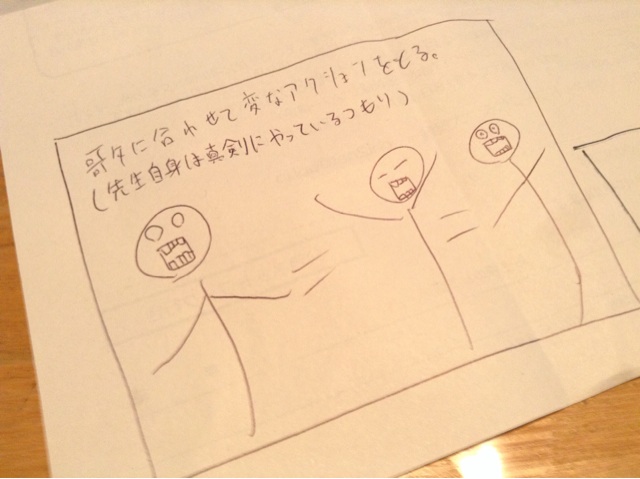 歌に合わせて変なアクションをとる。
(先生自身は真剣にやっているつもり)